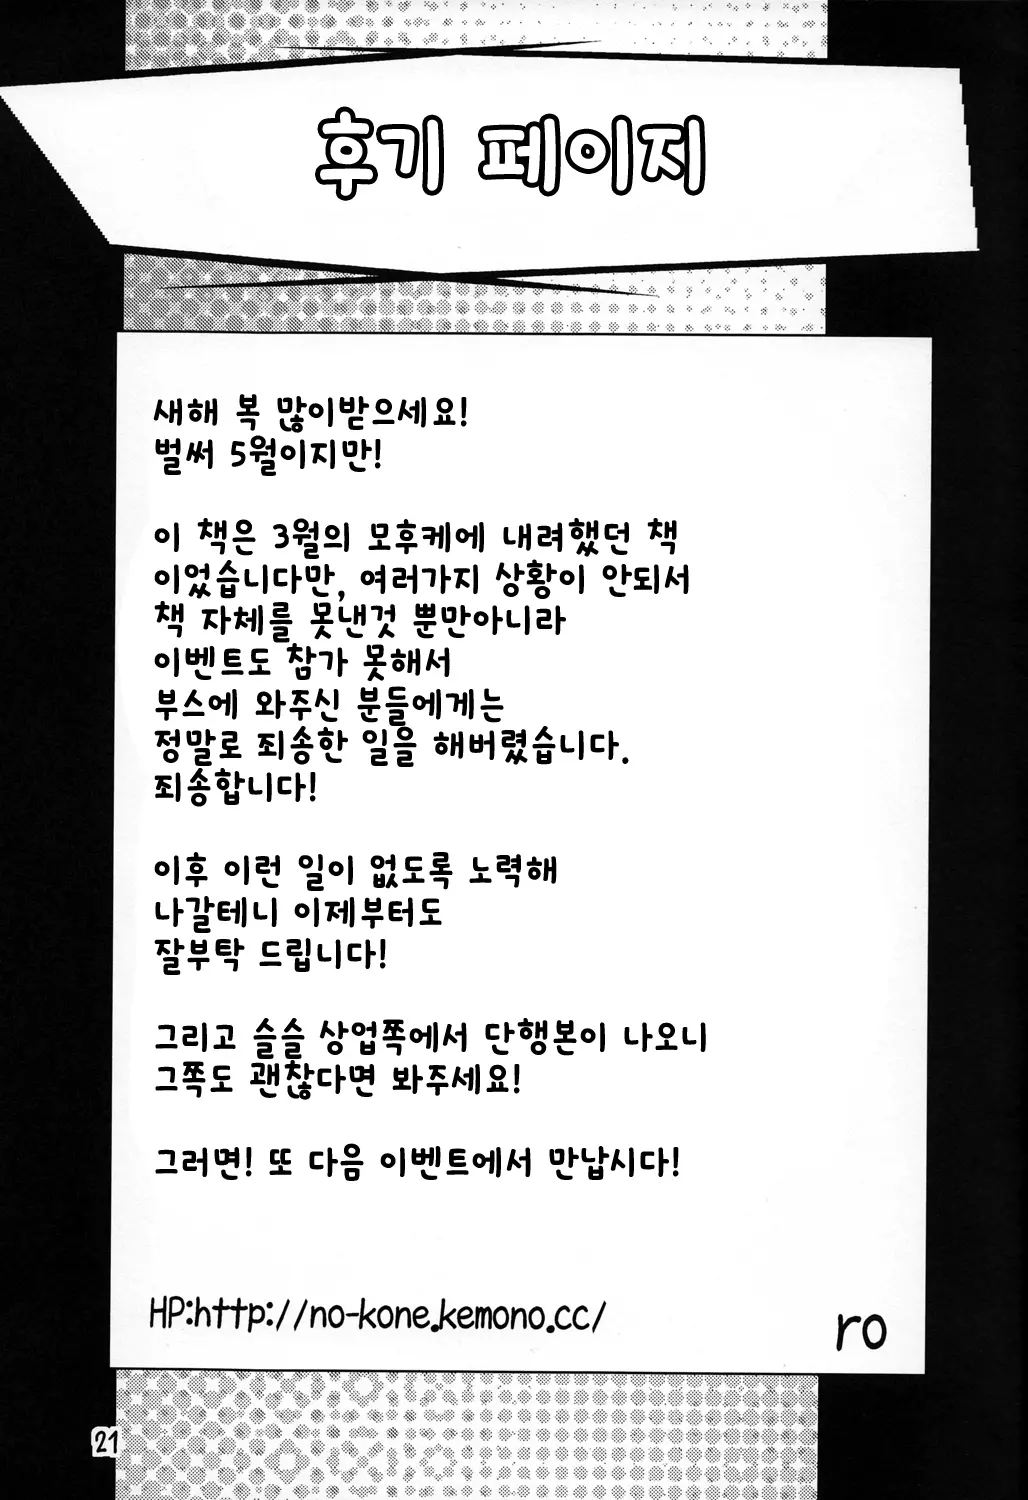 후기 페이지
새해 복 많이받으세요!
벌써 5월이지만!
이 책은 3월의 모후케에 내려했던 책
이었습니다만, 여러가지 상황이 안되서
책 자체를 못낸것 뿐만아니라
이벤트도 참가 못해서
부스에 와주신 분들에게는
정말로 죄송한 일을 해버렸습니다.
죄송합니다!
이후 이런 일이 없도록 노력해
나갈테니 이제부터도
잘부탁 드립니다!
그리고 슬슬 상업쪽에서 단행본이 나오니
그쪽도 괜찮다면 봐주세요!
그러면! 또 다음 이벤트에서 만납시다!
HP:http://no-kone.kemono.cc/
ro
21